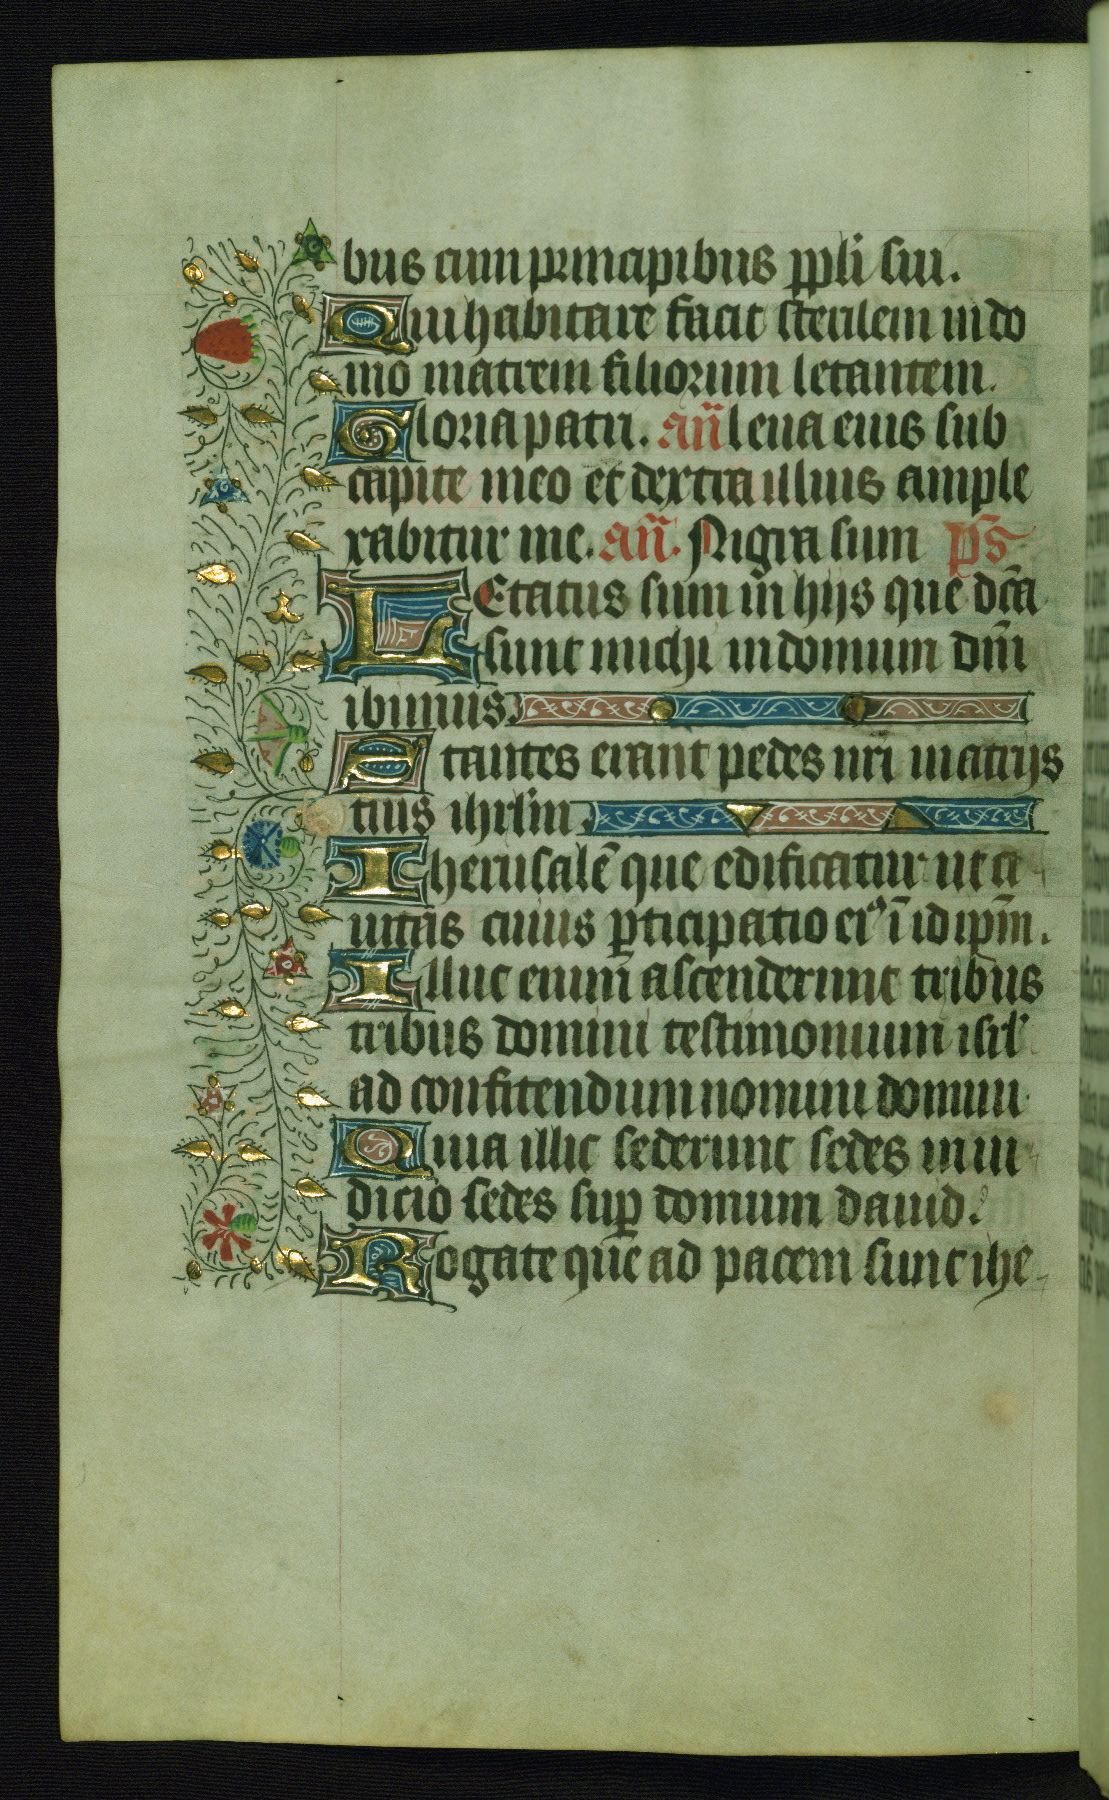 bus cum principibus ppli sui.
Qui habitare facit sterilem in do
mo matrem filiorum letantem.
Gloria patri. añ leua eius sub
capite meo et dextra illius ample
xabitur me. añ. Nigra sum ps
LEtatus sum in hijs que dc̄a
sunt michi in domum dn̄i
ibimus.
Stantes erant pedes nr̄i in atrijs
tuis ihrl̄m.
Iherusalē que edificatur ut ci
uitas cuius ꝑticipatio eiꝰ ī idip̄m.
Illuc enim ascenderunt tribus
tribus domini testimonium isrl̓
ad confitendum nomini domini
Quia illic sederunt sedes in iu
dicio sedes suꝑ domum dauid.
Rogate que ad pacem sunt ihe